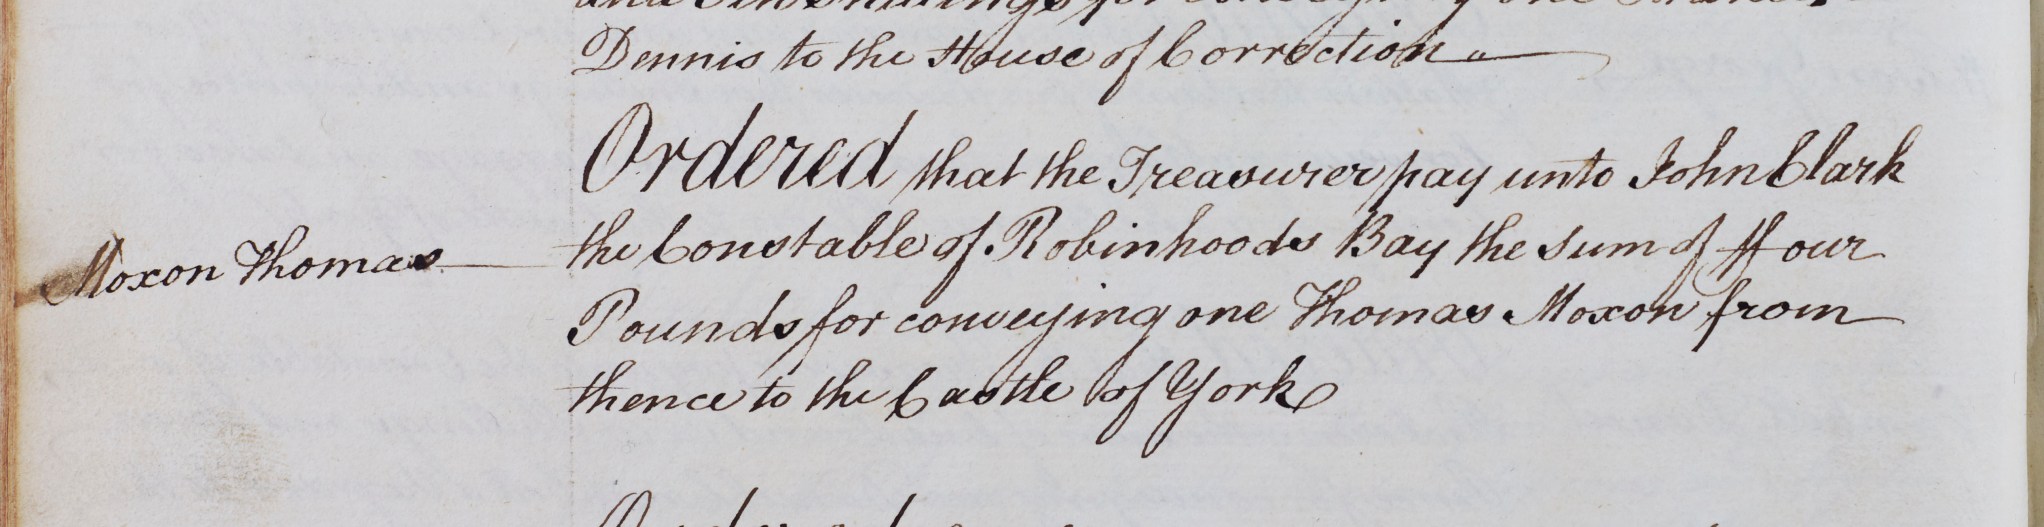 Dennis to the House of Correction
Ordered that the Treasurer pay unto John Clark
the Constable of Robinhoods Bay the sum of ffour
Moxon Thomas
Pounds for conveying one Thomas Moxon from
thence to the Castle of York